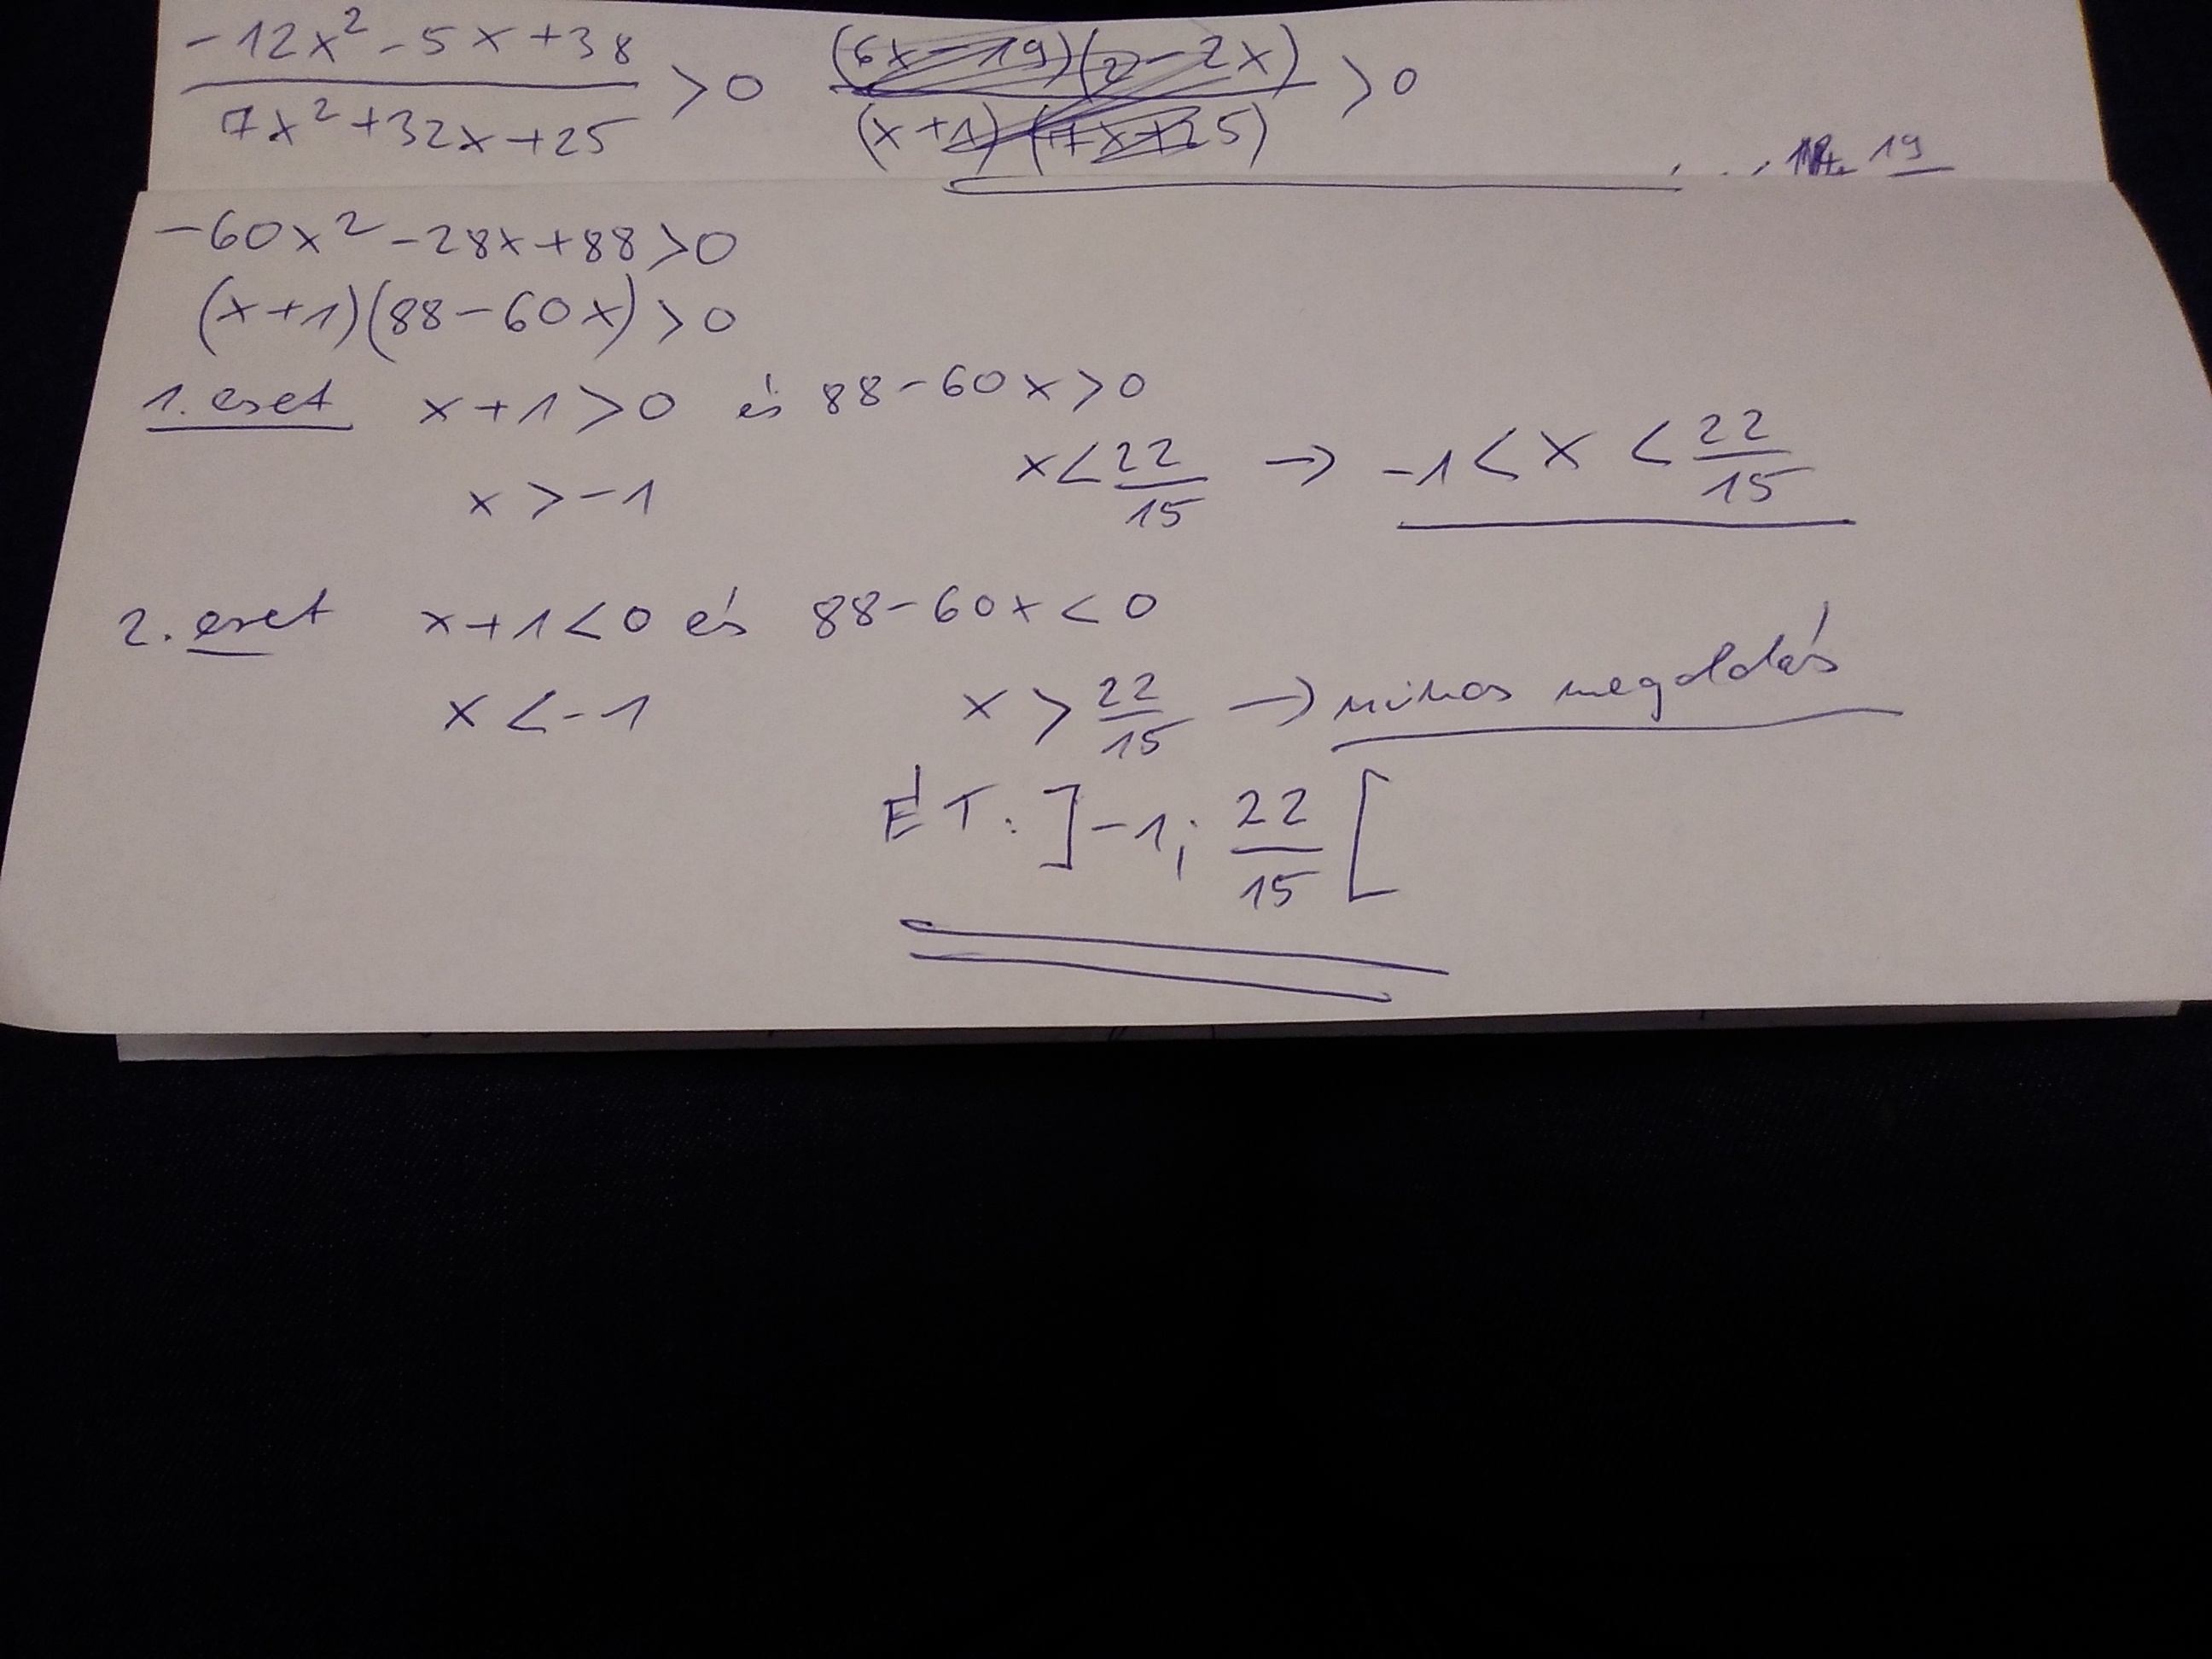 -12x²-5x+38 / 7x²+32x+25 > 0 (6x-19)(2-2x) / (x+1)(7x+25) > 0
19
-60x²-28x+88>0
(x+1)(88-60x)>0
1. eset x+1>0 és 88-60x>0
x>-1 x<22/15 → -1<x<22/15
2. eset x+1<0 és 88-60x<0
x<-1 x>22/15 → nincs megoldás
ÉT: ]-1; 22/15[